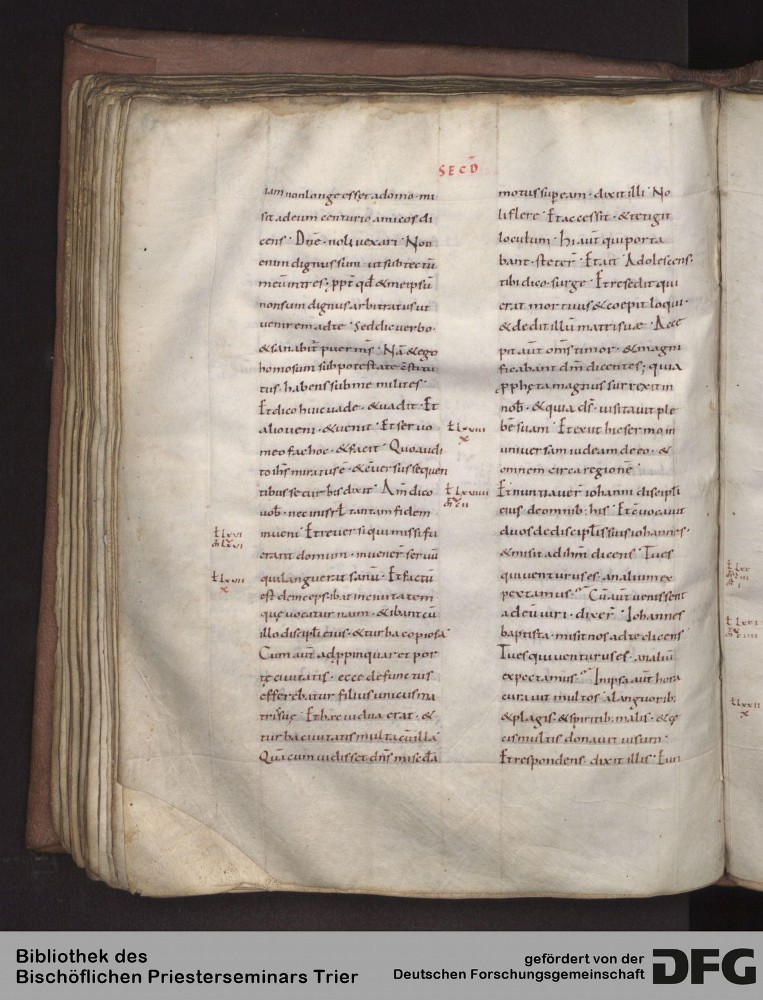 SECD̄
iam non longe esset a domo· mi
sit ad eum centurio amicos di
cens· Dn̄e· noli vexari· Non
enim dignus sum· ut sub tectū
meū intres; ppt̄ qd̄ & meipsū
non sum dignus arbitratus ut
venirem ad te· Sed dic verbo·
& sanabit̄ puer m̄s· Nā & ego
homo sum sub potestate c̄stitu
tus· habens sub me milites·
Et dico huic vade· & vadit· Et
alio veni· & venit· Et servo
meo fac hoc· & facit· Quo audi
to ih̄s miratus ē· & c̄versus sequen
tibus se turbis dixit· Am̄ dico
vob̄· nec in isrl̄ tantam fidem
inveni· Et reversi qui missi fu
erant domum· invener̄ servū
qui languerat sanū· Et factū
est deinceps· ibat in civitatem
quę vocatur naim· & ibant cū
illo discipl̄i eius· & turba copiosa·
Cum aut̄ adppinquaret por
tę civitatis· ecce defunctus
efferebatur filius unicus ma
tris suę· Et hęc vidua erat· &
turba civitatis multa cū illa·
Quā cum vidisset dn̄s mis̄c̄dia
motus sup eam· dixit illi· No
li flere· Et accessit· & tetigit
loculum· Hi aut̄ qui porta
bant· steter̄· Et ait· Adolescens·
tibi dico· surge· Et resedit qui
erat mortuus & coepit loqui·
& dedit illū matri suæ· Acce
pit aut̄ om̄s timor· & magni
ficabant dm̄ dicentes; quia
pphęta magnus surrexit in
nob̄· & quia ds̄· visitavit ple
bē suam· Et exiit hic sermo in
universam iudeam de eo· &
omnem circa regionē·
Et nuntiaver̄ iohanni discipl̄i
eius de omnib; his· Et c̄vocavit
duos de discipl̄is suis iohannes·
& misit ad ihm̄ dicens· Tu es
qui venturus es· an alium ex
pectamus· Cū aut̄ venissent
ad eū viri· dixer̄· Iohannes
baptista· misit nos ad te dicens·
Tu es qui venturus es· an aliū
expectamus· In ipsa aut̄ hora
curavit multos a languorib;
& plagis· & spiritib; malis· & cę
cis multis donavit visum·
Et respondens· dixit illis· Eun
Bibliothek des
Bischöflichen Priesterseminars Trier
gefördert von der
Deutschen Forschungsgemeinschaft
DFG